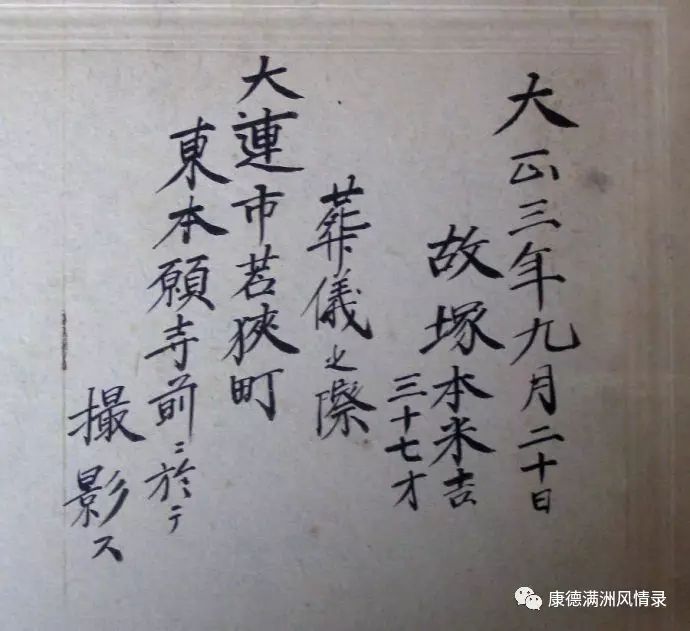 大正三年九月二十日
故塚本米吉
三十七才
葬儀之際
大連市若狹町
東本願寺前ニ於テ
撮影ス
康德满洲风情录